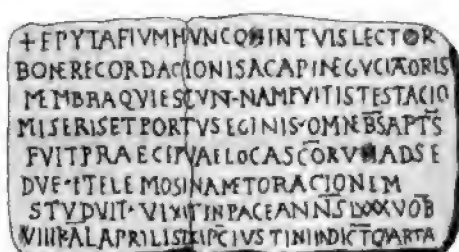 +EPYTAFIVMHVNCQVINTVISLECTOR
BONERECORDACIONISACAPINEGVCIATORIS
MEMBRAQVIESCVN-NAMFVITISTESTACIO
MISERISETPORTVSEGINIS·OMNEBSAPTS
FVITPRAECIPVAELOCASCORVMADSE
DVE·ETELEMOSINAMETORACIONEM
STVDVIT·VIXITINPACEANNSLXXXVOB
VIIIIKALAPRILISIXIPCIVSTINIINDICTQVARTA